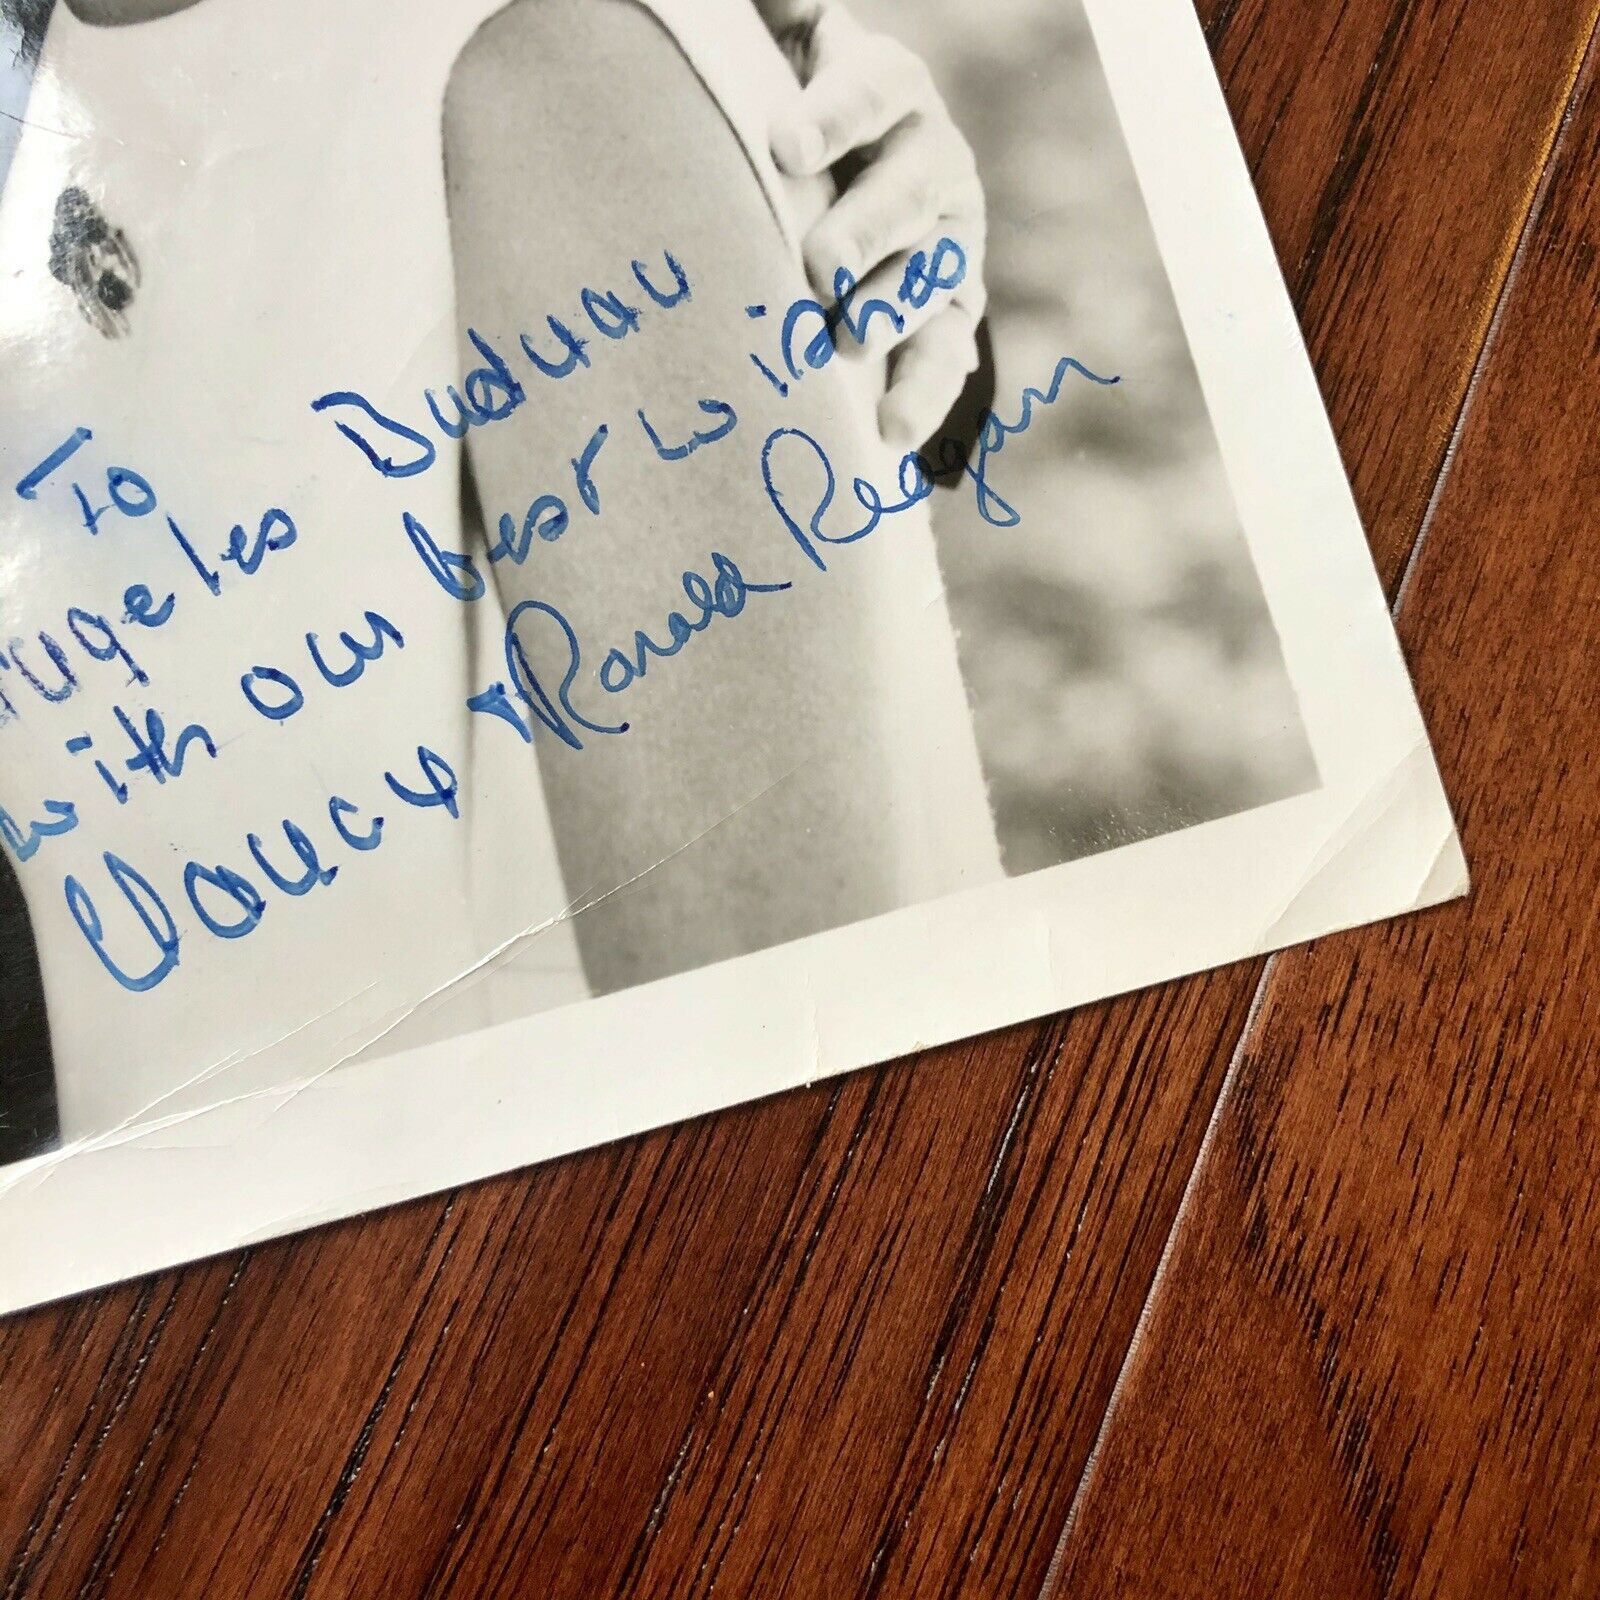 To
ngeles
with our best wishes
Nancy & Ronald Reagan